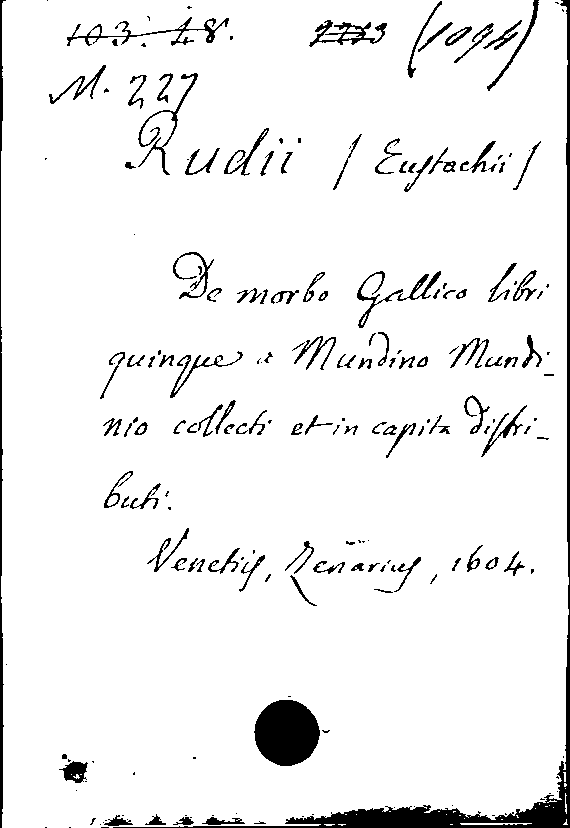 103. 48. 2253 (1094)
M. 227
Rudii / Eustachii /
De morbo Gallico libri
quinque a Mundino Mundi-
nio collecti et in capita distri-
buti.
Venetiis, Zenarius, 1604.